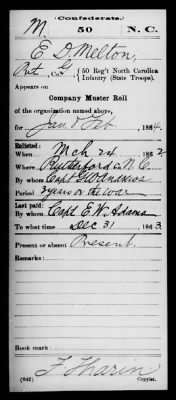 Confederate.
M. 50 N. C.
E. D. Melton,
Pvt, Co. G, 50 Reg't North Carolina
Infantry (State Troops).
Appears on
Company Muster Roll
of the organization named above,
for Jan & Feb, 1864.
Enlisted:
When Mch 24, 1862
Where Rutherford Co N. C.
By whom Capt G W Andrews
Period 3 years or the war
Last paid:
By whom Capt E. W. Adams
To what time Dec 31, 1863.
Present or absent Present
Remarks:
Book mark:
F Tharin
(642) Copyist.